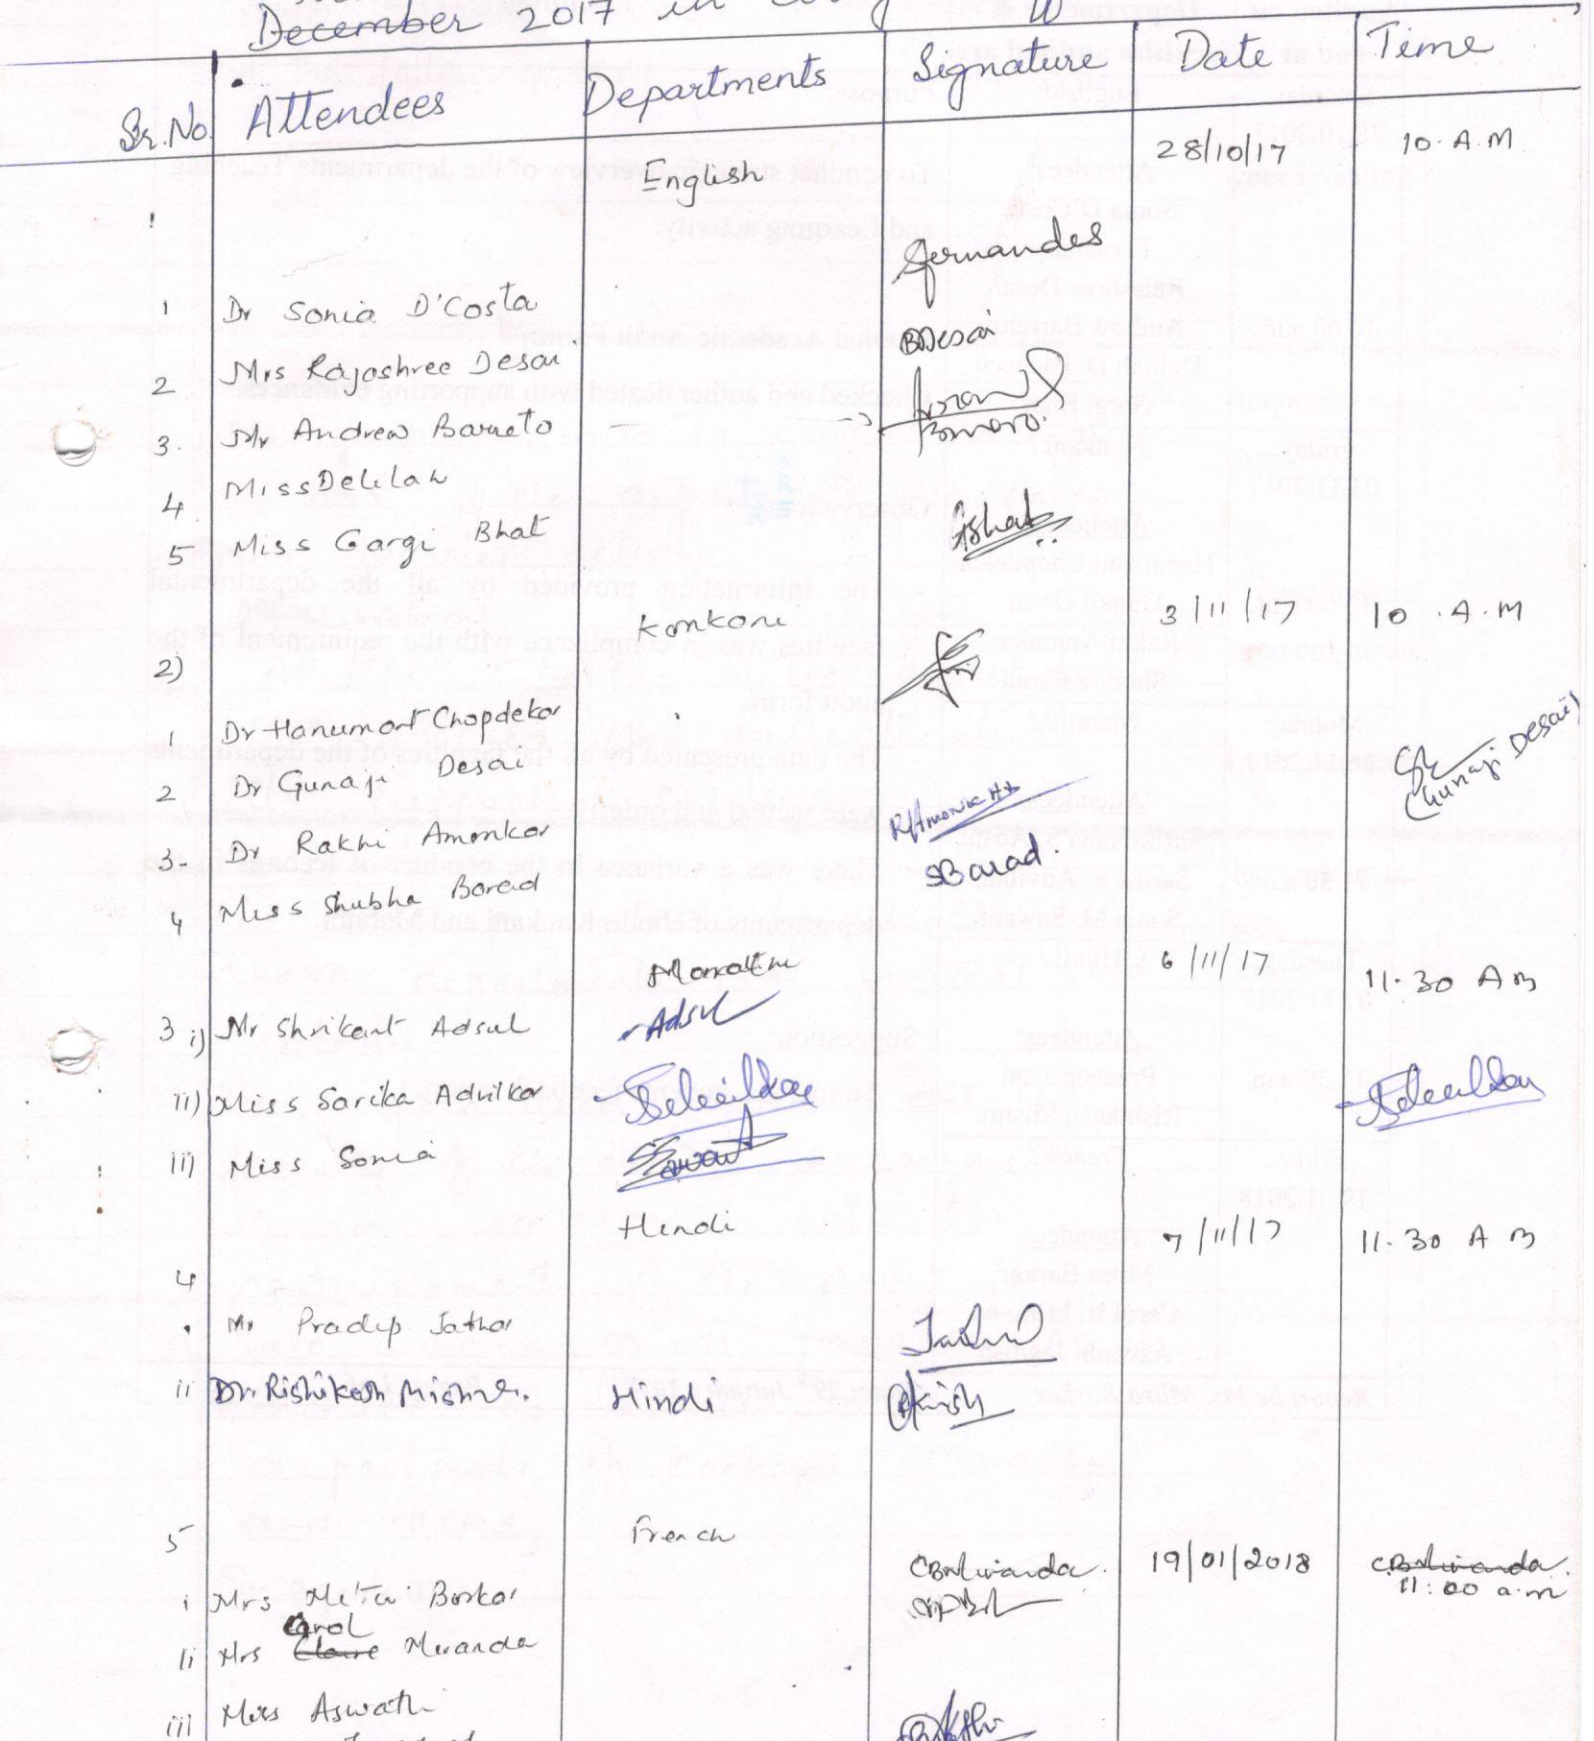 December 2017 in
Sr.No. Attendees Departments Signature Date Time
1 English 28/10/17 10.A.M
Fernandes
1 Dr Sonia D'Costa
BDesai
2 Mrs Rajashree Desai
3. Mr Andrew Barreto
4 Miss Delilah
5 Miss Gargi Bhat
GBhat
2) Konkani 3/11/17 10.A.M
1 Dr Hanumant Chopdekar
2 Dr Gunaji Desai
(Gunaji Desai)
3- Dr Rakhi Amonkar
4 Miss Shubha Barad SBarad.
Marathi 6/11/17 11.30 AM
3 i) Mr Shrikant Adsul Adsul
ii) Miss Sarika Advilkar
iii) Miss Sonia Sawant
4 Hindi 7/11/17 11.30 AM
. Mr Pradip Jathar
ii Dr. Rishikesh Mishra. Hindi
5 French
CBMiranda. 19/01/2018 CBMiranda.
11:00 a.m
i Mrs Mitra Borkar
Carol
ii Mrs Claire Miranda
iii Miss Aswathi